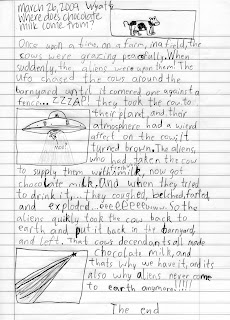 march 26, 2009 Wyatt
Where does chocolate
milk come from?
Once upon a time, on a farm, in a field, the
cows were grazing peacefully. When
suddenly, the aliens were upon them! The
UFO chased the cows around the
barnyard until it cornered one against a
fence... ZZZAP! they took the cow to
their planet, and their
atmosphere had a wierd
affect on the cow. it
turned brown. The aliens,
who had taken the cow
to supply them with milk, now got
chocolate milk. And when they tried
to drink it... they coughed, belched, farted,
and exploded... So the
aliens quickly took the cow back to
earth and put it back in the barnyard,
and left. That cows decendants all made
chocolate milk, and
thats why we have it, and its
also why aliens never come
to earth anymore!!!!!
The end